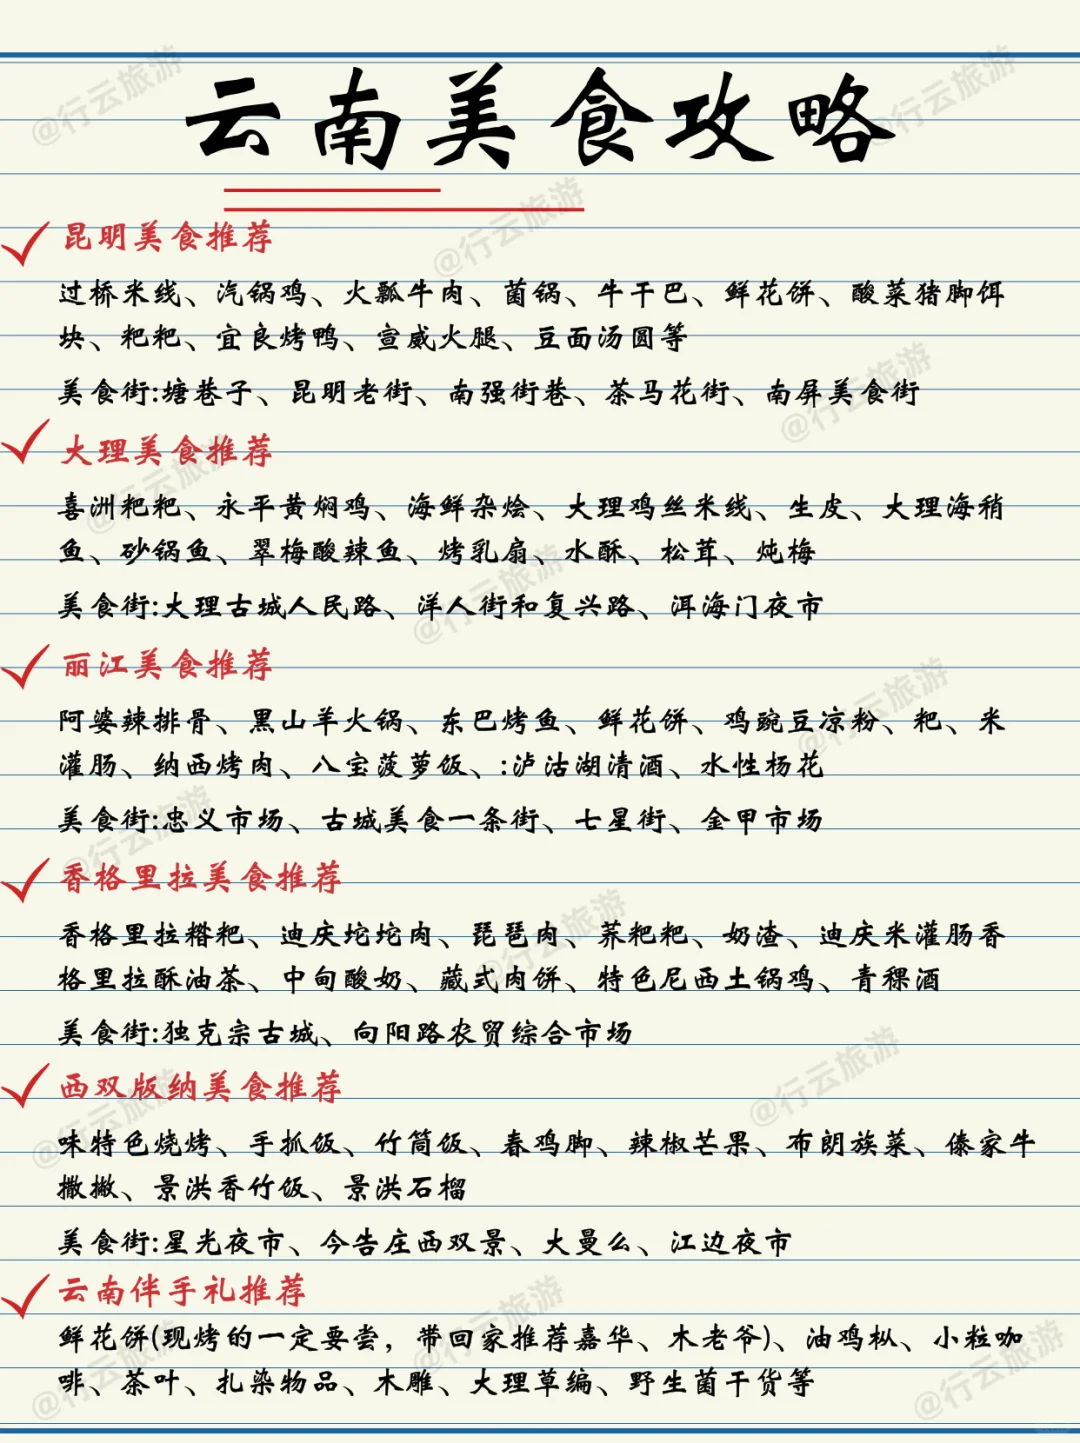 云南美食攻略
昆明美食推荐
过桥米线、汽锅鸡、火瓢牛肉、菌锅、牛干巴、鲜花饼、酸菜猪脚饵
块、粑粑、宜良烤鸭、宣威火腿、豆面汤圆等
美食街:塘巷子、昆明老街、南强街巷、茶马花街、南屏美食街
大理美食推荐
喜洲粑粑、永平黄焖鸡、海鲜杂烩、大理鸡丝米线、生皮、大理海稍
鱼、砂锅鱼、翠梅酸辣鱼、烤乳扇、水酥、松茸、炖梅
美食街:大理古城人民路、洋人街和复兴路、洱海门夜市
丽江美食推荐
阿婆辣排骨、黑山羊火锅、东巴烤鱼、鲜花饼、鸡豌豆凉粉、粑、米
灌肠、纳西烤肉、八宝菠萝饭、:泸沽湖清酒、水性杨花
美食街:忠义市场、古城美食一条街、七星街、金甲市场
香格里拉美食推荐
香格里拉糌粑、迪庆坨坨肉、琵琶肉、荞粑粑、奶渣、迪庆米灌肠香
格里拉酥油茶、中甸酸奶、藏式肉饼、特色尼西土锅鸡、青稞酒
美食街:独克宗古城、向阳路农贸综合市场
西双版纳美食推荐
味特色烧烤、手抓饭、竹筒饭、春鸡脚、辣椒芒果、布朗族菜、傣家牛
撒撇、景洪香竹饭、景洪石榴
美食街:星光夜市、今告庄西双景、大曼么、江边夜市
云南伴手礼推荐
鲜花饼(现烤的一定要尝，带回家推荐嘉华、木老爷)、油鸡枞、小粒咖
啡、茶叶、扎染物品、木雕、大理草编、野生菌干货等
@行云旅游
@行云旅游
@行云旅游
@行云旅游
@行云旅游
@行云旅游
@行云旅游
@行云旅游
@行云旅游
@行云旅游
@行云旅游
@行云旅游
@行云旅游
@行云旅游